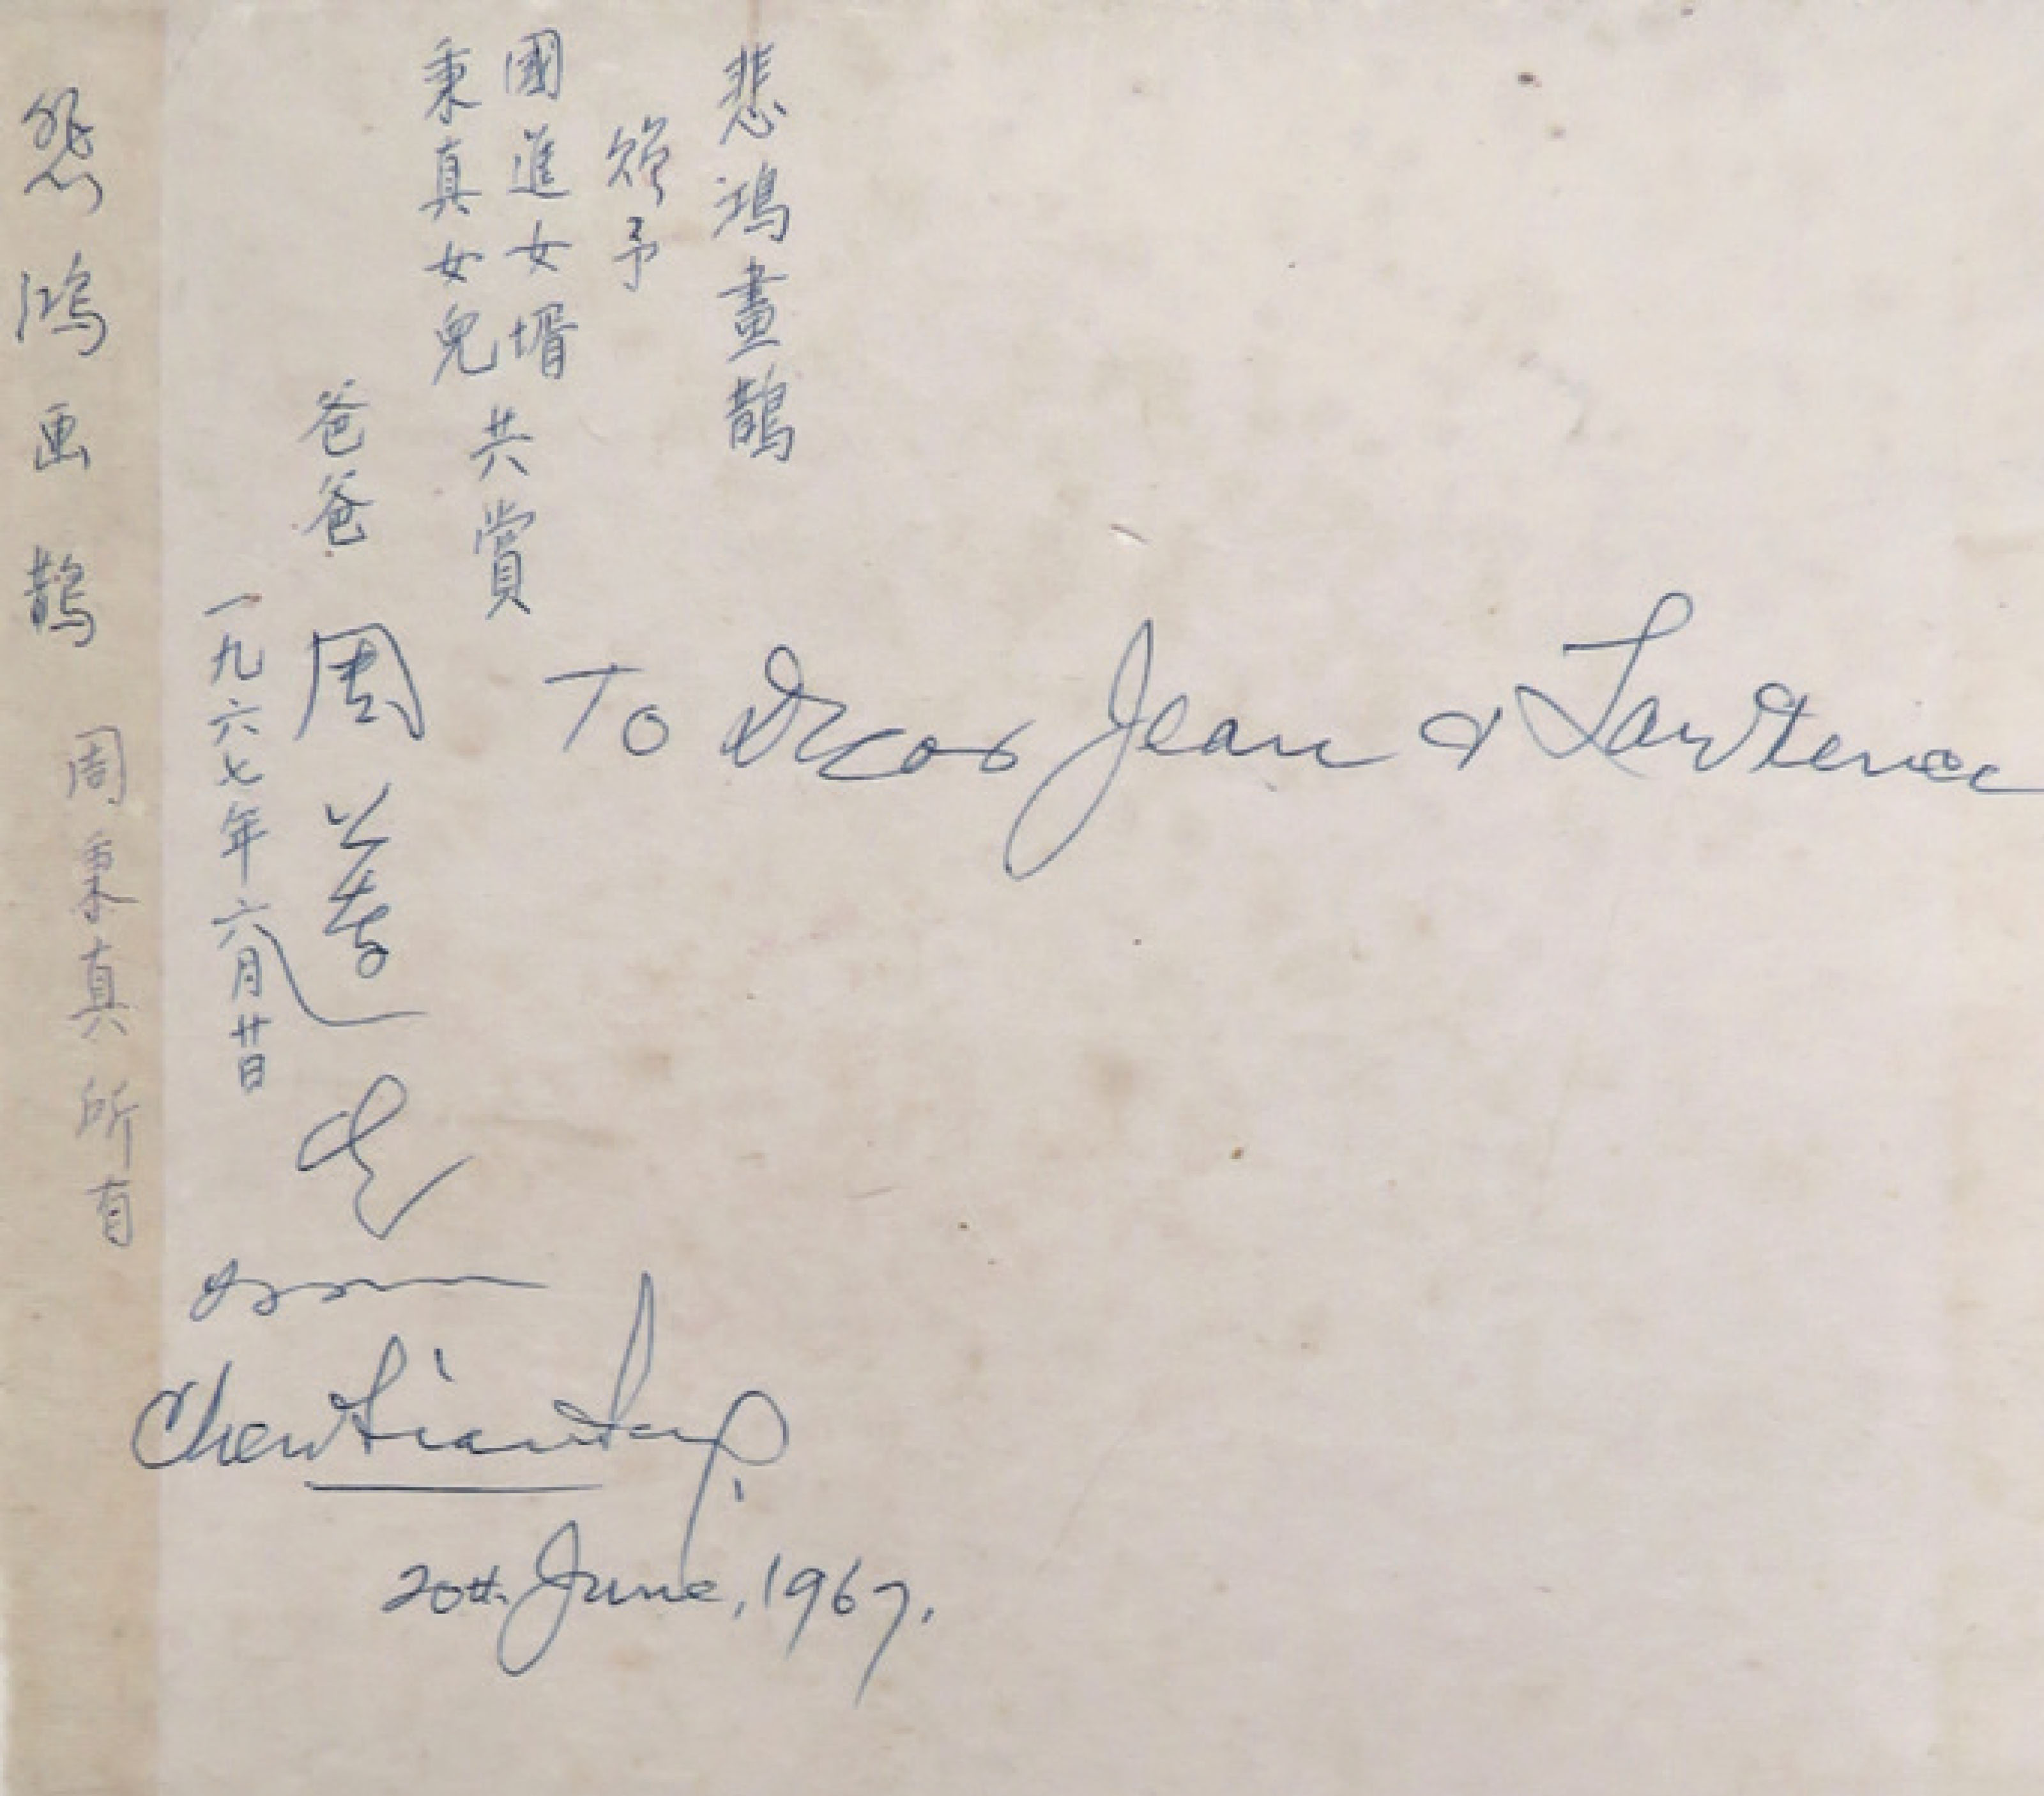 悲鴻畫鵲
贈予
國進女壻
秉真女兒
共賞
爸爸
周蓮生
一九六七年六月廿日
悲鴻画鵲
周秉真所有
To Dear Jean & Lawrence
from
Chew Lian Seng
20th June, 1967.